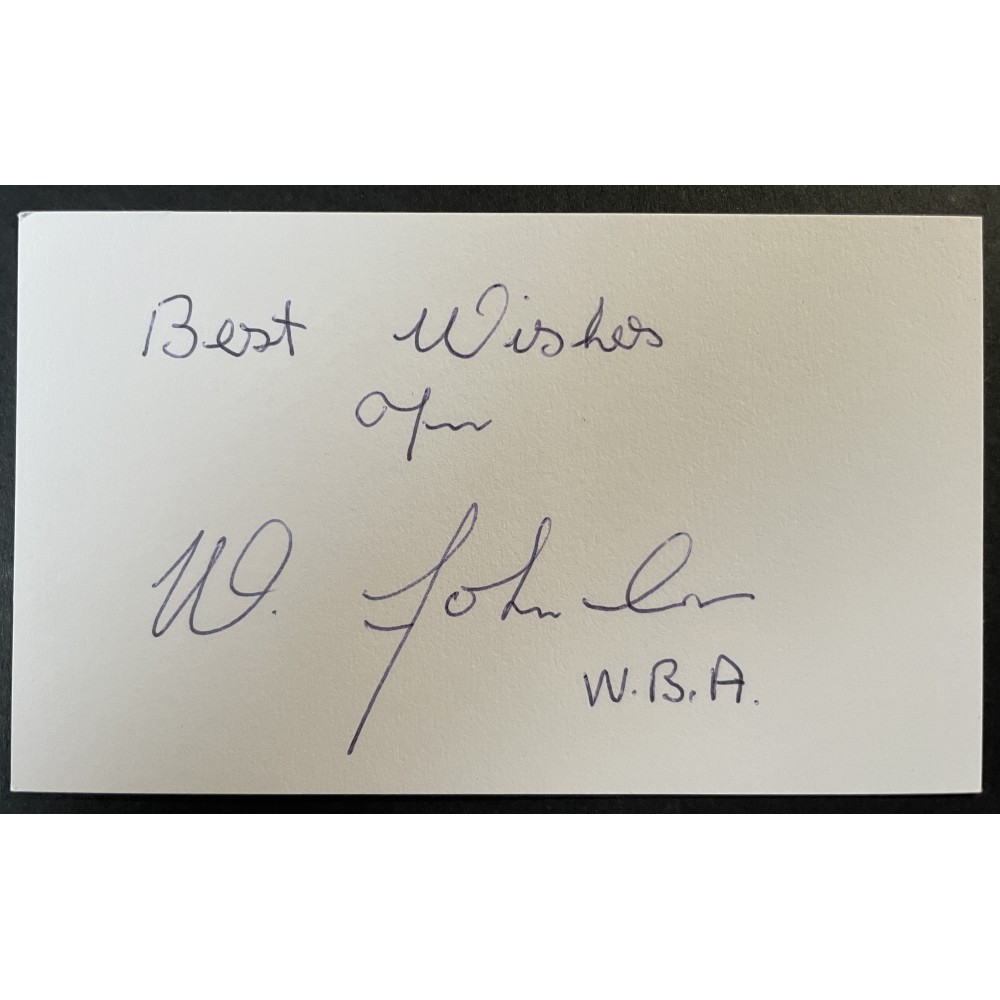 Best Wishes
W. Johnston
W.B.A.